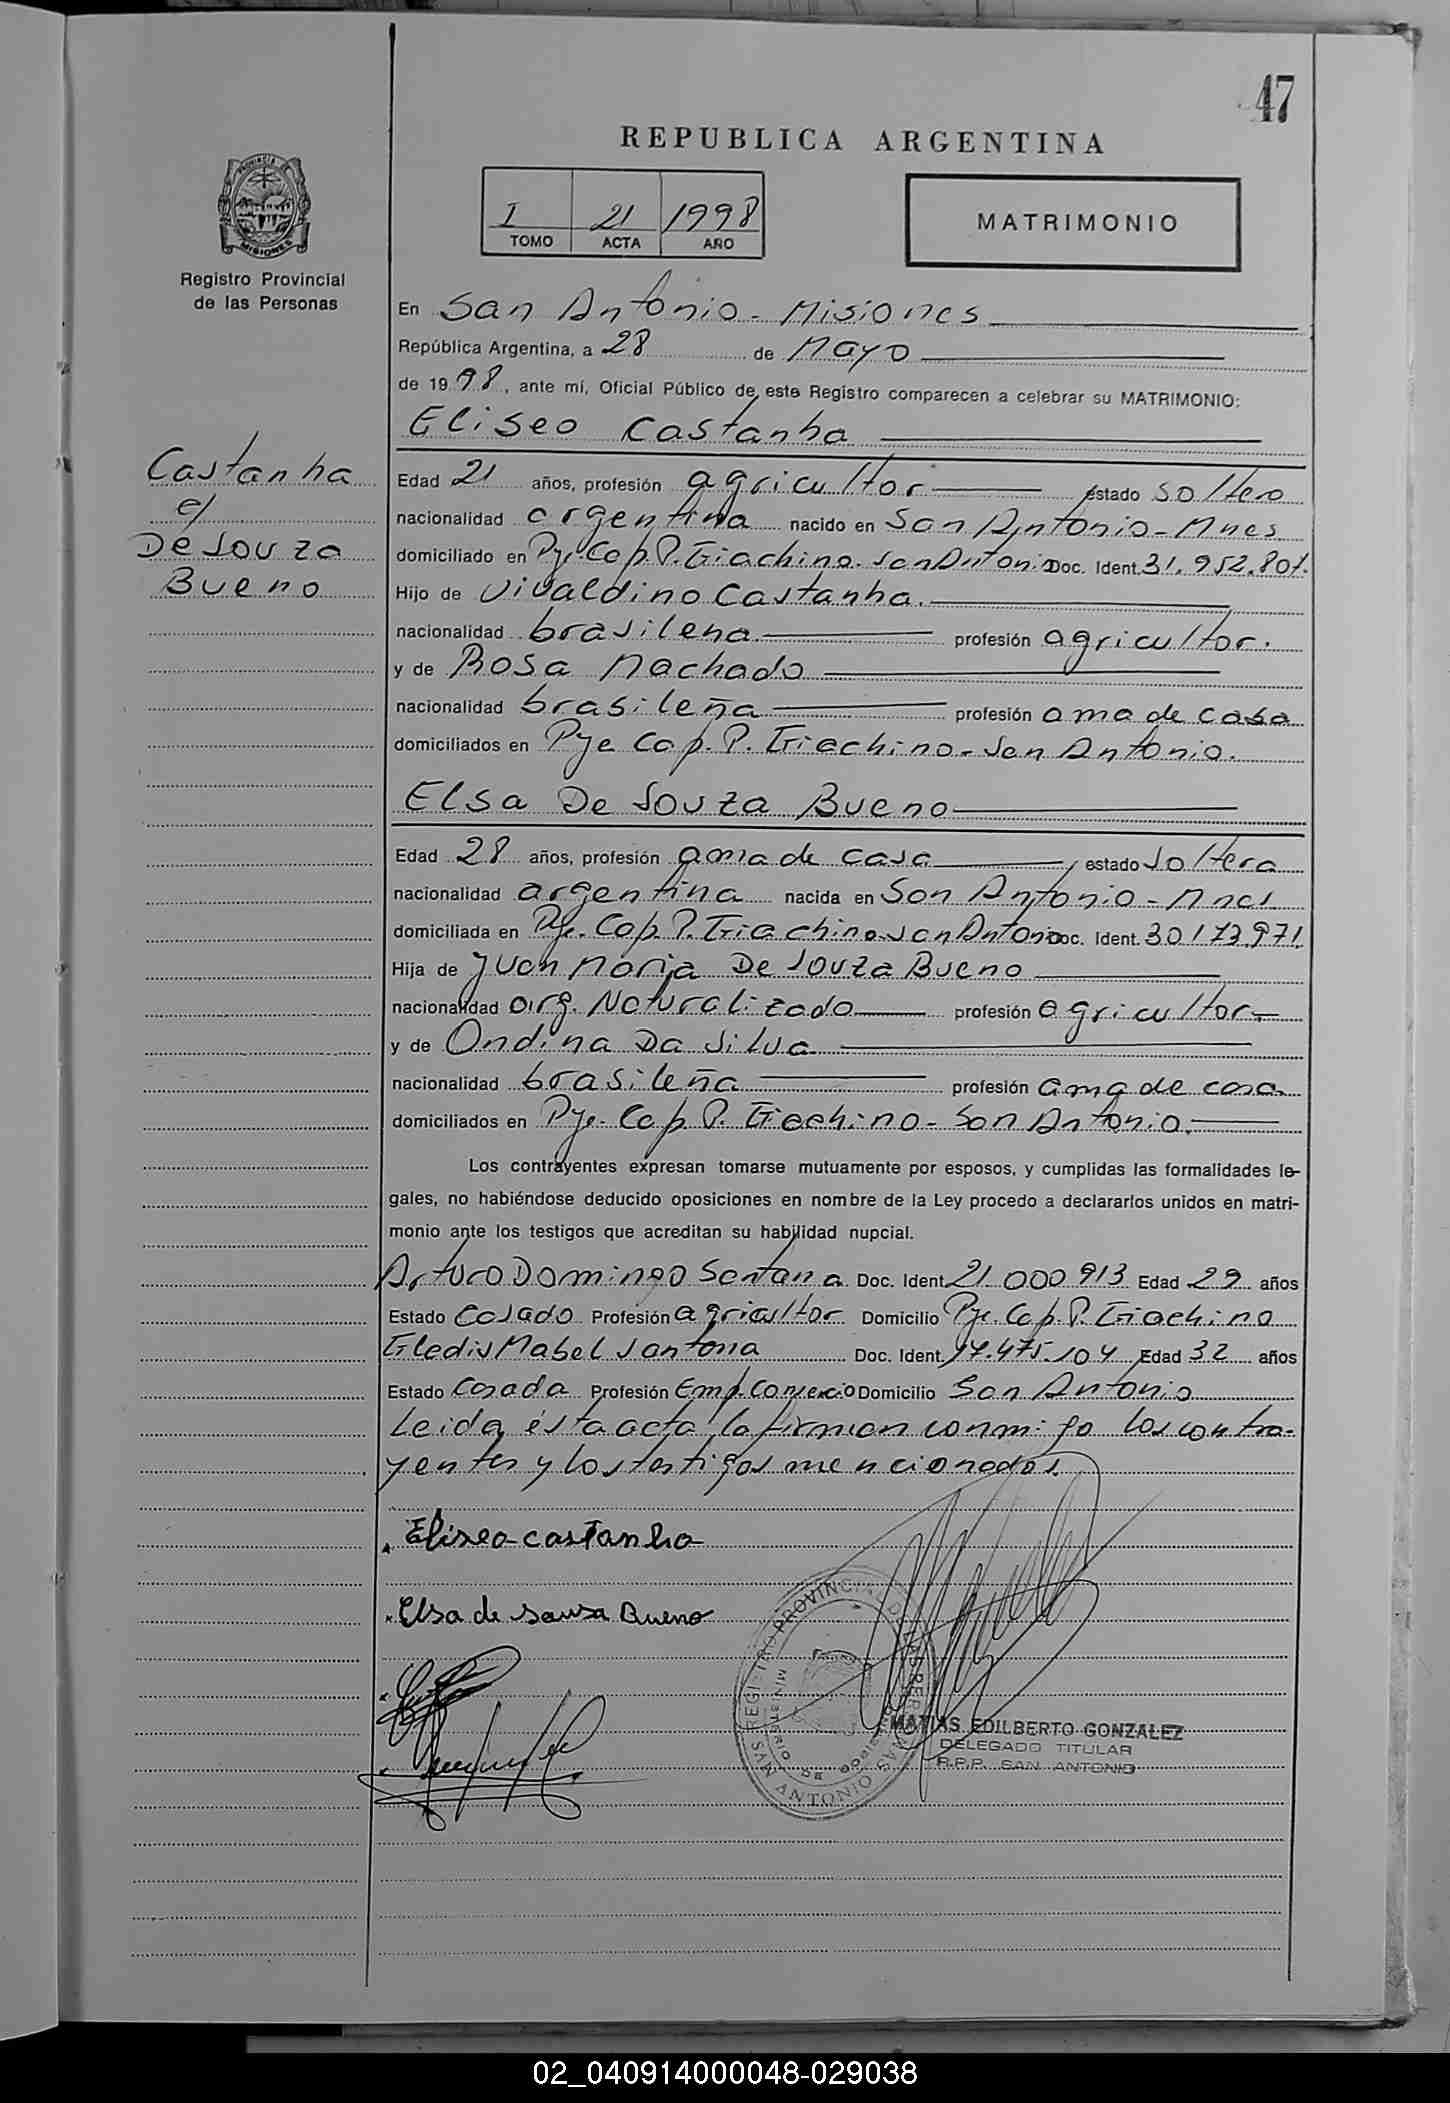 47
REPUBLICA ARGENTINA
I 21 1998
TOMO ACTA AÑO
MATRIMONIO
PROVINCIA DE
MISIONES
Registro Provincial
de las Personas
En San Antonio - Misiones
República Argentina, a 28 de Mayo
de 1998, ante mí, Oficial Público de este Registro comparecen a celebrar su MATRIMONIO:
Eliseo Castanha
Castanha
c/
De Souza
Bueno
Edad 21 años, profesión agricultor estado soltero
nacionalidad argentina nacido en San Antonio - Mnes
domiciliado en Pje. Cap. P. Giachino. San Antonio Doc. Ident. 31.952.801.
Hijo de Vivaldino Castanha.
nacionalidad brasilena profesión agricultor.
y de Rosa Machado
nacionalidad brasileña profesión ama de casa
domiciliados en Pje Cap. P. Giachino - San Antonio.
Elsa De Souza Bueno
Edad 28 años, profesión ama de casa estado soltera
nacionalidad argentina nacida en San Antonio - Mnes
domiciliada en Pje. Cap. P. Giachino. San Antonio Doc. Ident. 30173.971
Hija de Juan Maria De Souza Bueno
nacionalidad arg. Naturalizado profesión agricultor
y de Ondina Da Silva
nacionalidad brasileña profesión ama de casa
domiciliados en Pje. Cap. P. Giachino - San Antonio.
Los contrayentes expresan tomarse mutuamente por esposos, y cumplidas las formalidades le-
gales, no habiéndose deducido oposiciones en nombre de la Ley procedo a declararlos unidos en matri-
monio ante los testigos que acreditan su habilidad nupcial.
Arturo Domingo Santana Doc. Ident. 21 000 913 Edad 29 años
Estado Casado Profesión agricultor Domicilio Pje. Cap. P. Giachino
Gledis Mabel Santana Doc. Ident. 17.475.104 Edad 32 años
Estado Casada Profesión Emp. Comercio Domicilio San Antonio
Leida ésta acta la firman conmigo los contra-
yentes y los testigos mencionados.
Eliseo castanha
Elsa de sousa Bueno
REGISTRO PROVINCIAL DE LAS PERSONAS
MINISTERIO DE GOBIERNO
SAN ANTONIO
MATIAS EDILBERTO GONZALEZ
DELEGADO TITULAR
R.P.P. SAN ANTONIO
02_040914000048-029038